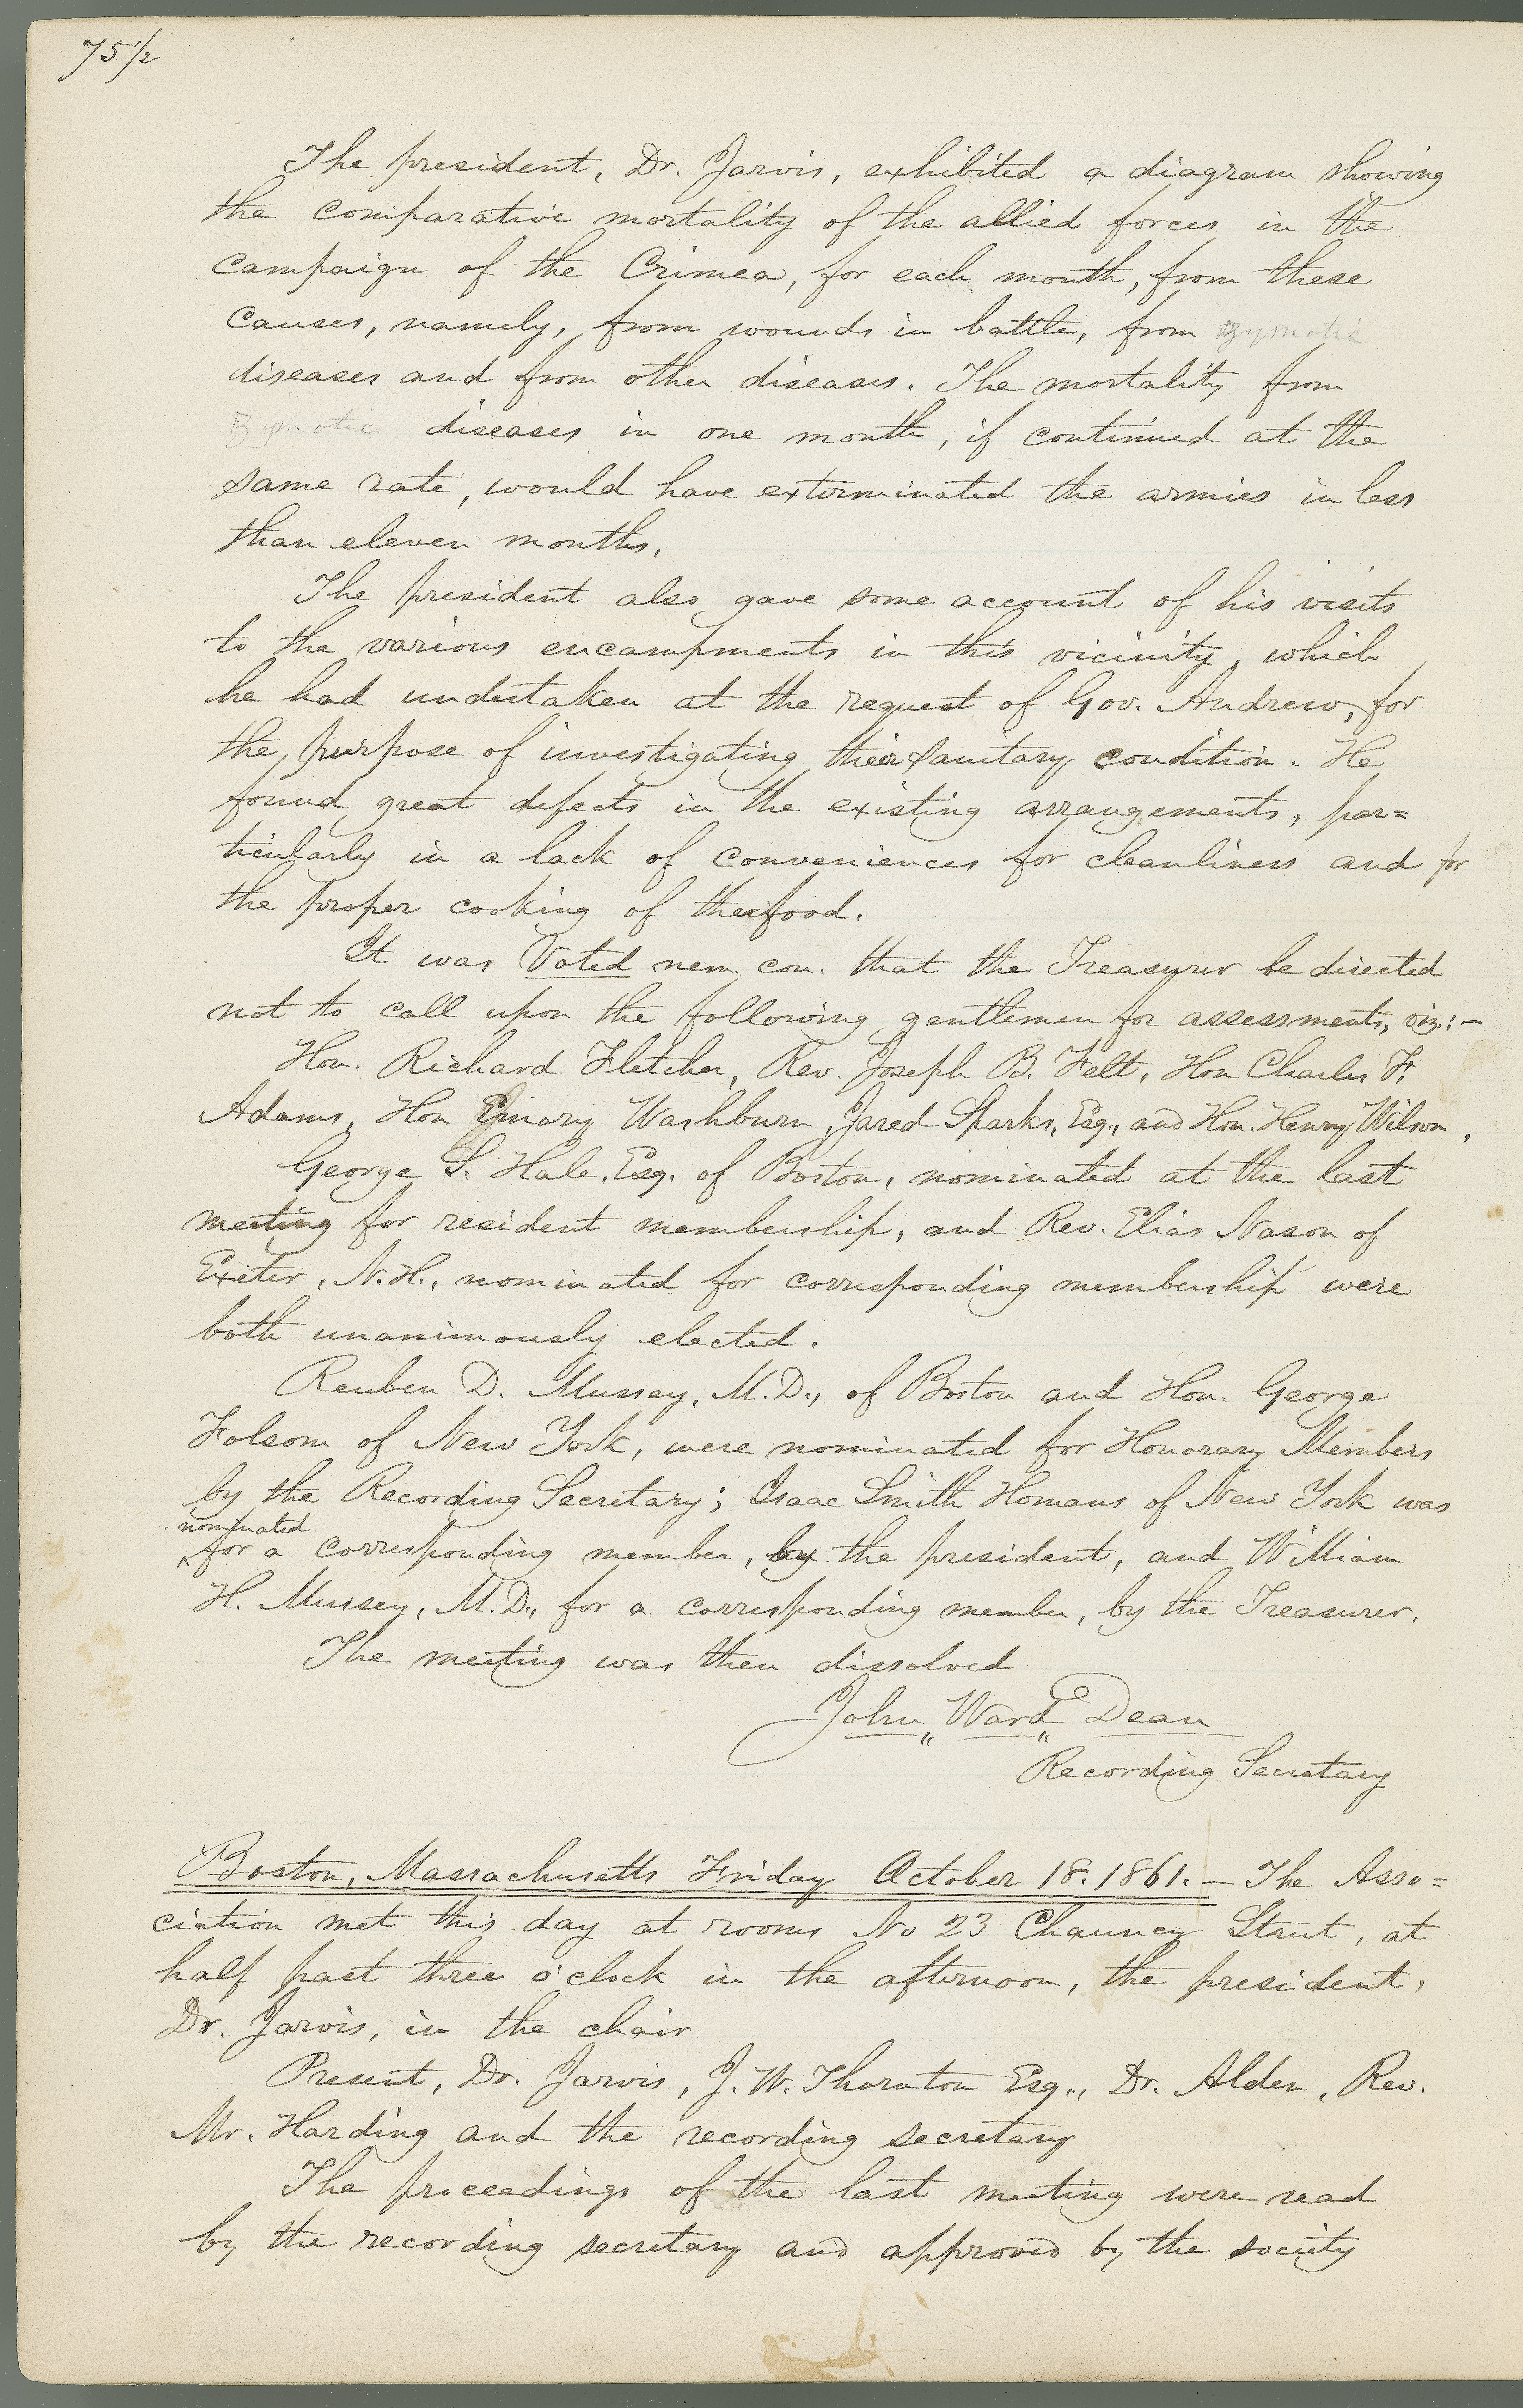 75 1/2
The president, Dr. Jarvis, exhibited a diagram showing
the comparative mortality of the allied forces in the
campaign of the Crimea, for each month, from these
causes, namely, from wounds in battle, from zymotic
diseases and from other diseases. The mortality from
zymotic diseases in one month, if continued at the
same rate, would have exterminated the armies in less
than eleven months.
The president also gave some account of his visits
to the various encampments in this vicinity, which
he had undertaken at the request of Gov. Andrew, for
the purpose of investigating their sanitary condition. He
found great defects in the existing arrangements, par=
ticularly in a lack of conveniences for cleanliness and for
the proper cooking of the food.
It was Voted nem. con. that the Treasurer be directed
not to call upon the following gentlemen for assessments, viz.:—
Hon. Richard Fletcher, Rev. Joseph B. Felt, Hon Charles F.
Adams, Hon Emory Washburn, Jared Sparks, Esq., and Hon. Henry Wilson,
George S. Hale, Esq. of Boston, nominated at the last
meeting for resident membership, and Rev. Elias Nason of
Exeter, N.H., nominated for corresponding membership were
both unanimously elected.
Reuben D. Mussey, M.D., of Boston and Hon. George
Folsom of New York, were nominated for Honorary Members
by the Recording Secretary; Isaac Smith Homans of New York was
nominated
for a corresponding member, by the president, and William
H. Mussey, M.D., for a corresponding member, by the Treasurer.
The meeting was then dissolved
John Ward Dean
Recording Secretary
Boston, Massachusetts Friday October 18. 1861. — The Asso=
ciation met this day at rooms No 23 Chauncy Street, at
half past three o'clock in the afternoon, the president,
Dr. Jarvis, in the chair
Present, Dr. Jarvis, J. W. Thornton Esq., Dr. Alden, Rev.
Mr. Harding and the recording secretary
The proceedings of the last meeting were read
by the recording secretary and approved by the society